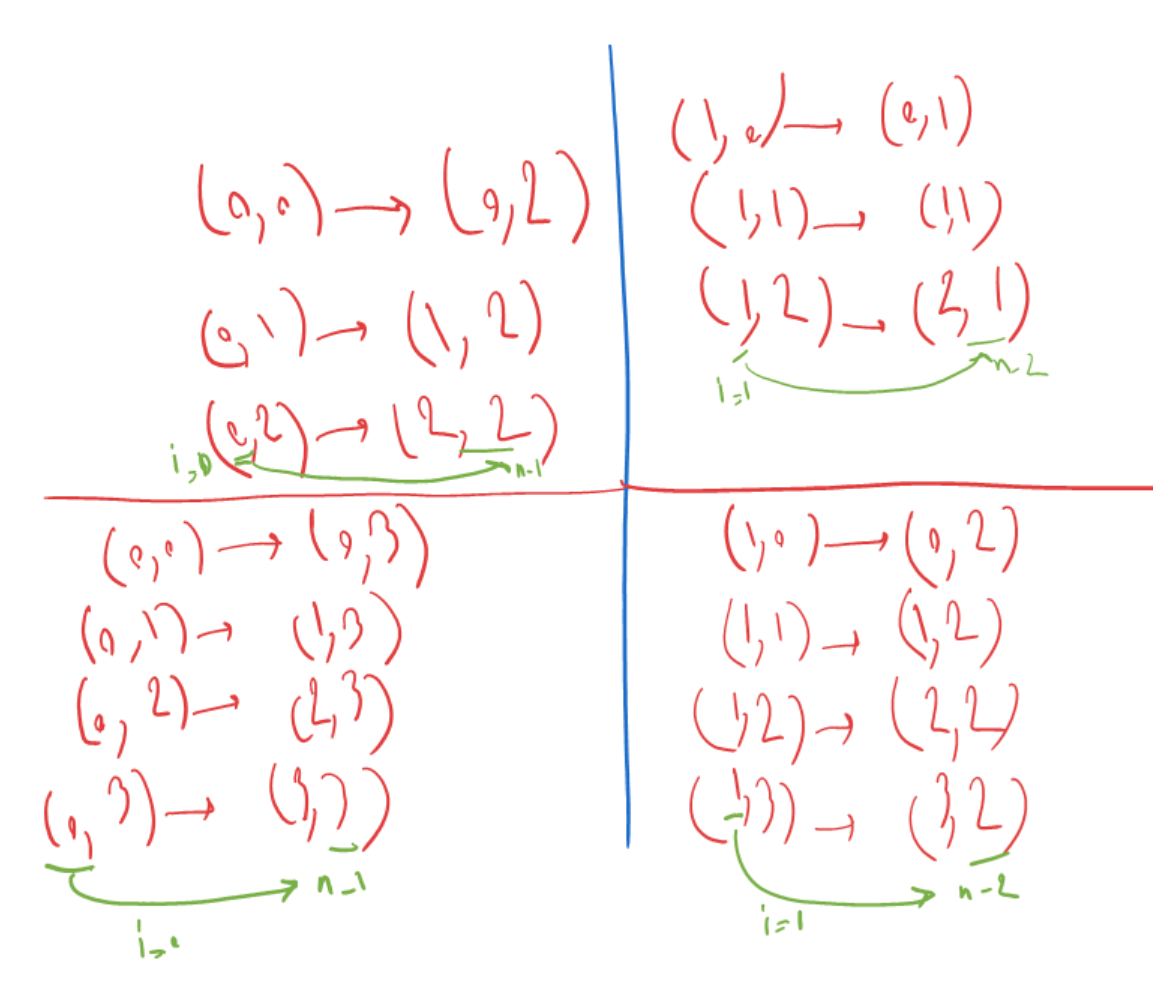 (0,0) → (0,2)
(0,1) → (1,2)
(0,2) → (2,2)
i=0 n-1
(1,0) → (0,1)
(1,1) → (1,1)
(1,2) → (2,1)
i=1 n-2
(0,0) → (0,3)
(0,1) → (1,3)
(0,2) → (2,3)
(0,3) → (3,3)
n-1
i=0
(1,0) → (0,2)
(1,1) → (1,2)
(1,2) → (2,2)
(1,3) → (3,2)
n-2
i=1